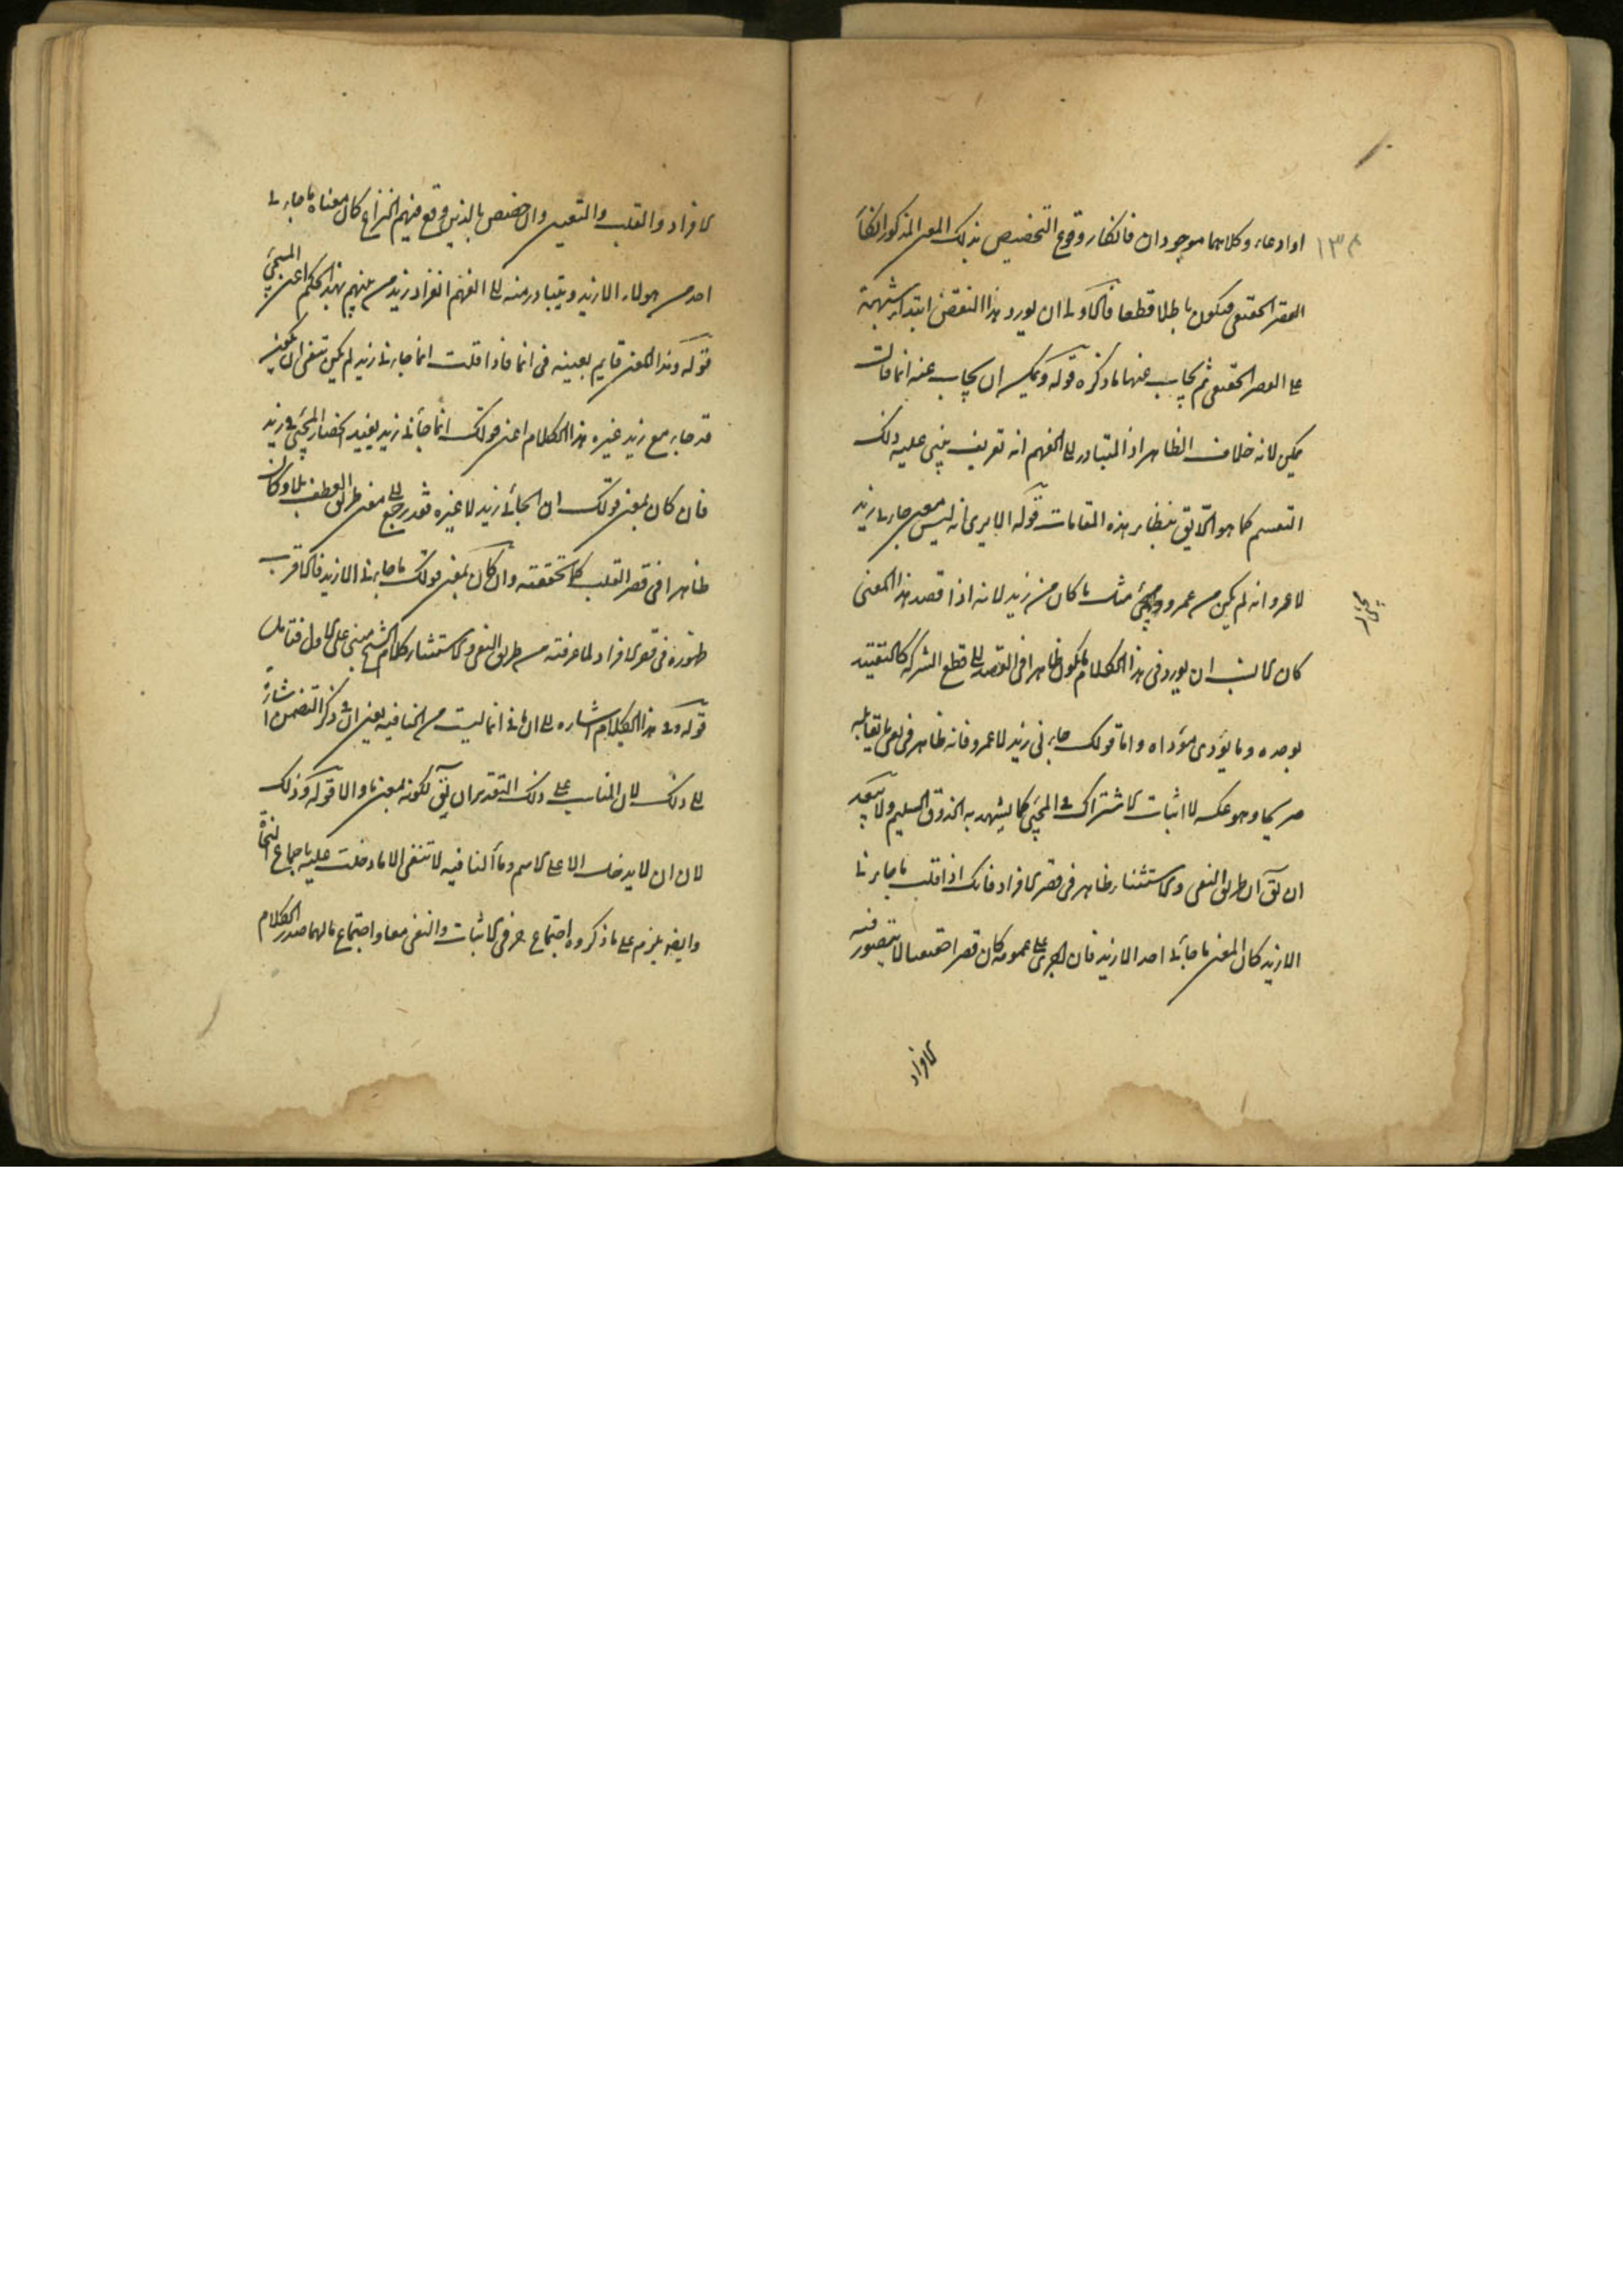 ١٣٤
او ادعاء وكلاهما موجودان فانكار وقوع التخصيص بذلك المعنى المذكور انكار
القصر الحقيقى فيكون باطلا قطعا فالاولى ان يورد هذا النقض ابتداء شبهة
على القصر الحقيقى ثم يجاب عنها بما ذكره قوله ويمكن ان يجاب عنه انما قال
يمكن لانه خلاف الظاهر اذ المتبادر الى الفهم انه تعريف يبنى عليه ذلك
التقسيم كما هو اللايق بنظاير هذه المقامات قوله الا يرى انه ليس معنى جاءنى زيد
لا عمرو انه لم يكن من عمرو مجئ مثل ما كان من زيد لانه اذا قصد هذا المعنى
كان الانسب ان يورد فى هذا الكلام ما يكون ظاهرا فى القصد الى قطع الشركة كالتقييد
بوحده وما يؤدى مؤداه واما قولك جاءنى زيد لا عمرو فانه ظاهر فى نفى ما يقابله
صريحا وهو عكسه لا اثبات الاشتراك فى المجئ كما يشهد به الذوق السليم ولا يبعد
ان يق ان طريق النفى والاستثناء ظاهر فى قصر الافراد فانك اذا قلت ما جاءنى
الا زيد كان المعنى ما جاءنى احد الا زيد فان اجرى على عمومه كان قصرا حقيقيا لا يتصور فيه
الافراد
الافراد والقلب والتعيين وان خصص بالذين وقع فيهم النزاع كان معناه ما جاءنى
احد من هولاء الا زيد ويتبادر منه الى الفهم انفراد زيد من بينهم بهذا الحكم اعنى المجئ
قوله وهذا المعنى قايم بعينه فى انما فاذا قلت انما جاءنى زيد لم يكن تنفى ان يكون
قد جاء مع زيد غيره هذا الكلام اعنى قولك انما جاءنى زيد يفيد انحصار المجئ فى زيد
فان كان بمعنى قولك ان الجائى زيد لا غيره فقد رجع الى معنى طريق العطف بلا وكان
ظاهرا فى قصر القلب كما تحققته وان كان بمعنى قولك ما جاءنى الا زيد فالاقرب
ظهوره فى قصر الافراد لما عرفته من طريق النفى والاستثناء وكلام الشيخ مبنى على الاول فتامل
قوله وفى هذا الكلام اشارة الى ان ما فى انما ليست هى النافية يعنى ان فى ذكر التضمن اشارة
الى ذلك لان المناسب على ذلك التقدير ان يق لكونه بمعنى ما والا قوله وذلك
لان ان لا يدخل الا على الاسم وما النافية لا تنفى الا ما دخلت عليه باجماع النحاة
وايضا يلزم على ما ذكروه اجتماع حرفى الاثبات والنفى معا واجتماع ما لهما صدر الكلام